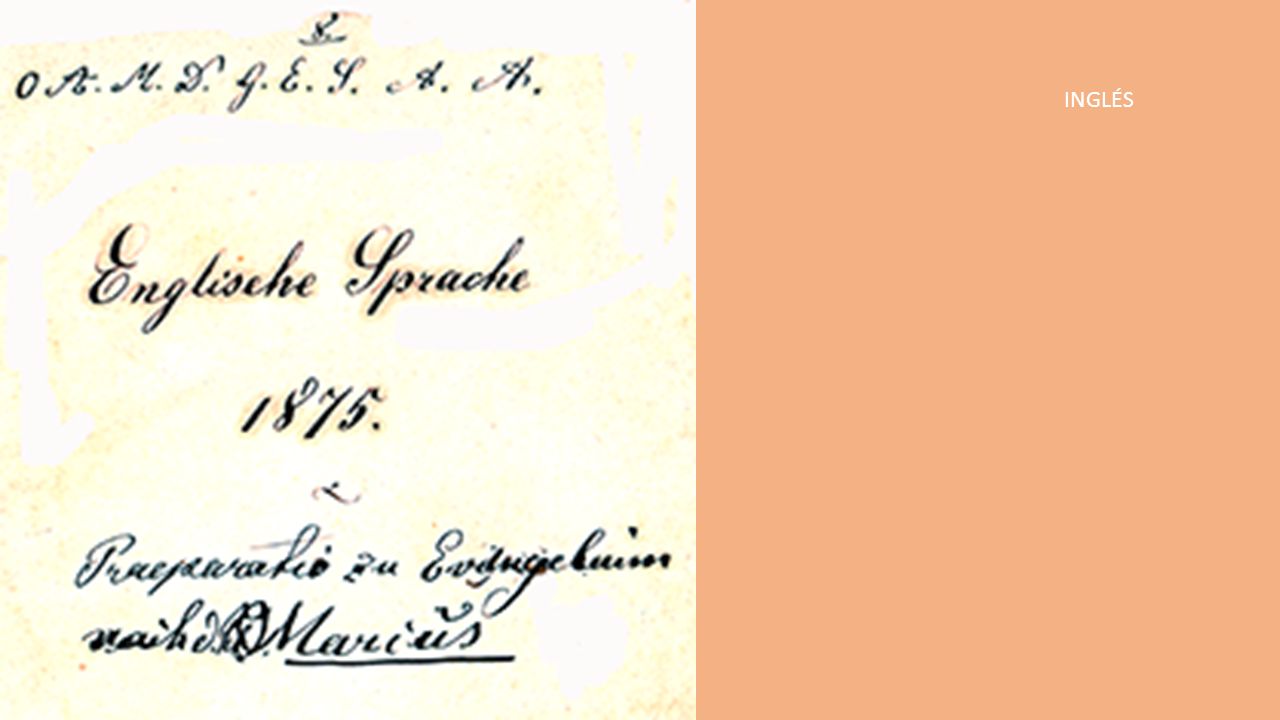 8.
O A. M. D. G. E. S. A. A.
Englische Sprache
1875.
Praeparatio zu Evangelium
Marius
INGLÉS